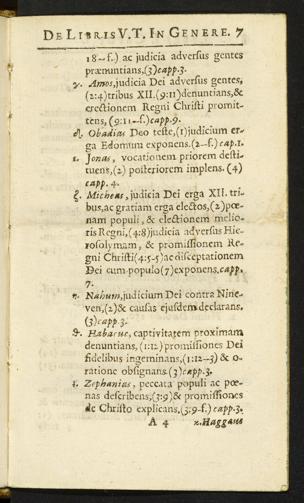 DE LIBRIS V.T. IN GENERE. 7
18–f.) ac judicia adversus gentes
prænuntians,(3)capp.3.
γ. Amos,judicia Dei adversus gentes,
(2:4)tribus XII.(9:11)denuntians,&
erectionem Regni Christi promit-
tens, (9:11–f.)capp.9.
δ. Obadias Deo teste,(1)judicium er-
ga Edomum exponens.(2–f.)cap.1.
ε. Jonas, vocationem priorem desti-
tuens,(2) posteriorem implens. (4)
capp. 4.
ζ. Micheas,judicia Dei erga XII. tri-
bus,ac gratiam erga electos,(2)pœ-
nam populi, & electionem melio-
ris Regni,(4:8)judicia adversus Hie-
rosolymam, & promissionem Re-
gni Christi(4:5-5)ac disceptationem
Dei cum populo(7)exponens.capp.
7.
η. Nahum,judicium Dei contra Nine-
ven,(2)& causas ejusdem declarans.
(3)capp.3.
θ. Habacuc, captivitatem proximam
denuntians, (1:12)promissiones Dei
fidelibus ingeminans,(1:12–3) & o-
ratione obsignans.(3)capp.3.
ι. Zephanias, peccata populi ac pœ-
nas describens,(3:9)& promissiones
de Christo explicans,(3:9-f.)capp.3.
A 4 κ.Haggæus